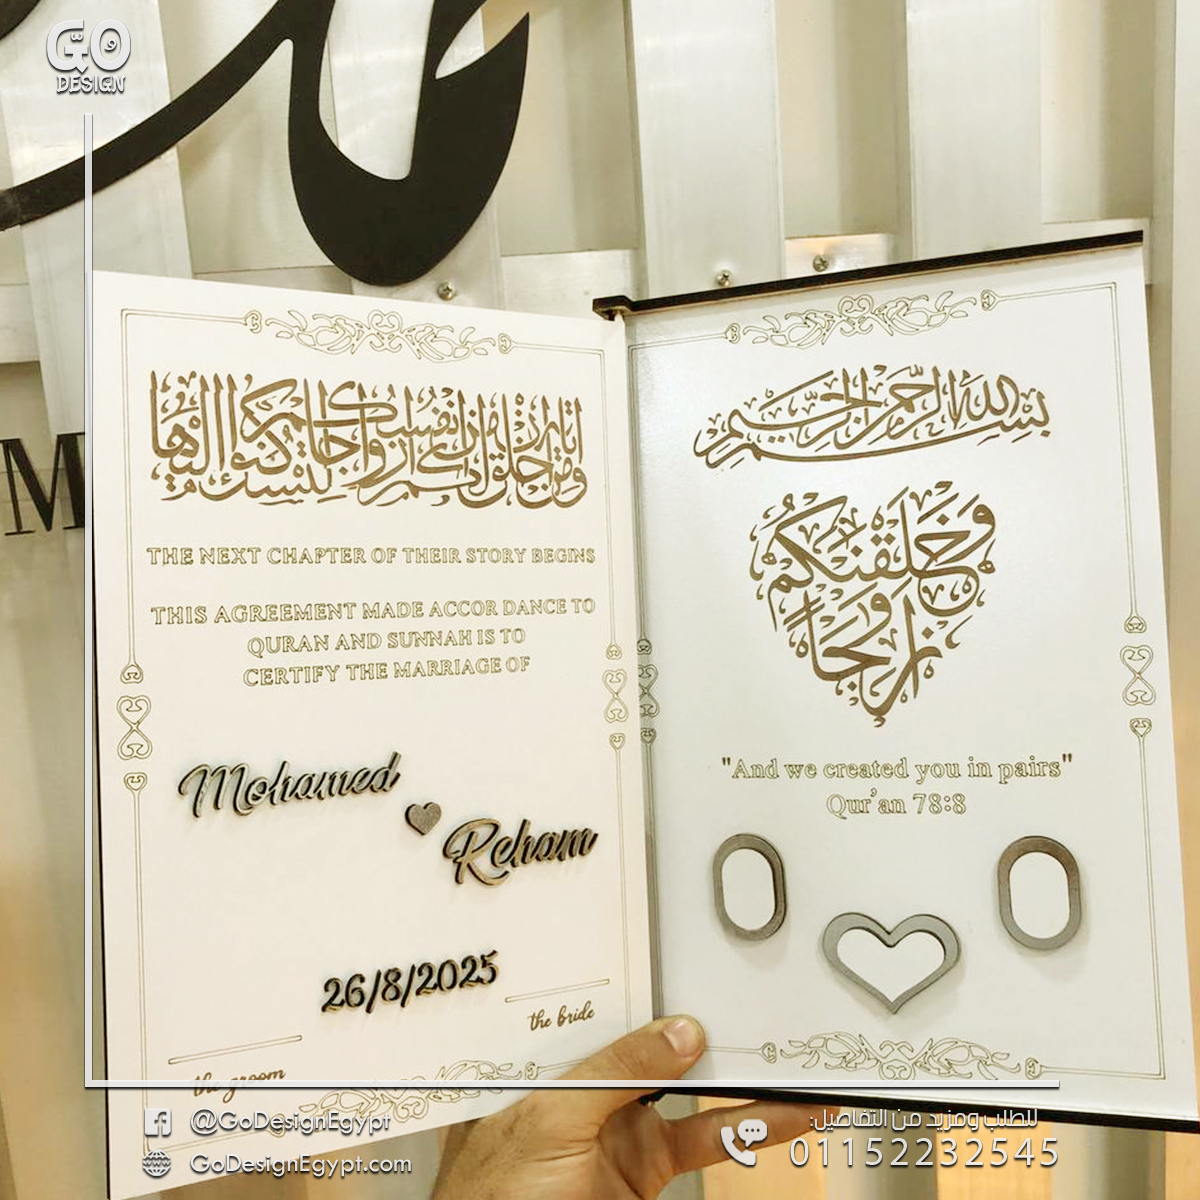 GO
DESIGN
M
ومن آياته أن خلق لكم من أنفسكم أزواجا لتسكنوا إليها
THE NEXT CHAPTER OF THEIR STORY BEGINS
THIS AGREEMENT MADE ACCOR DANCE TO
QURAN AND SUNNAH IS TO
CERTIFY THE MARRIAGE OF
Mohamed
Reham
26/8/2025
the bride
the groom
بسم الله الرحمن الرحيم
وَخَلَقْنَاكُمْ
أَزْوَاجًا
"And we created you in pairs"
Qur'an 78:8
@GoDesignEgypt
GoDesignEgypt.com
للطلب ومزيد من التفاصيل:
01152232545